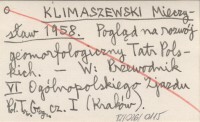 KLIMASZEWSKI Mieczy-
sław 1958. Pogląd na rozwój
geomorfologiczny Tatr Pols-
kich. — W: Przewodnik
VI Ogólnopolskiego Zjazdu
cz. I (Kraków).